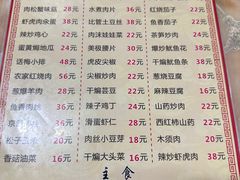 肉松蟹味菇 28元 水煮肉片 38元 红烧茄子 22元
虾虎肉余蛋 38元 比管土豆丝 32元 鱼香茄子 22元
辣炒鸡心 32元 肉沫娃娃菜 22元 茶笋炒肉 22元
蛋黄焗地瓜 24元 美极腰片 30元 爆炒鱿鱼花 38元
话梅小排 48元 虎皮尖椒 22元 干煸鱿鱼条 38元
农家红烧肉 56元 尖椒炒肉 22元 葱烧豆腐 18元
葱爆羊肉 38元 干煸芸豆 22元 麻辣豆腐 18元
鱼香肉丝 36元 辣子鸡丁 24元 山药炒肉 22元
36元 滑蛋虾仁 28元 西红柿山药 22元
松子玉米 30元 肉丝小豆芽 18元 木须肉 20元
香菇油菜 16元 干煸大头菜 16元 辣炒虾虎肉 38元
主食